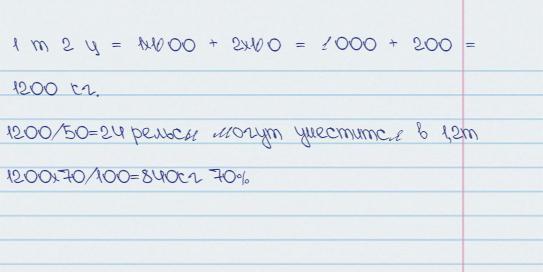 1 т 2 ц = 1х1000 + 2х100 = 1000 + 200 =
1200 кг.
1200/50=24 рельсы могут уместится в 1,2т
1200х70/100=840кг 70%